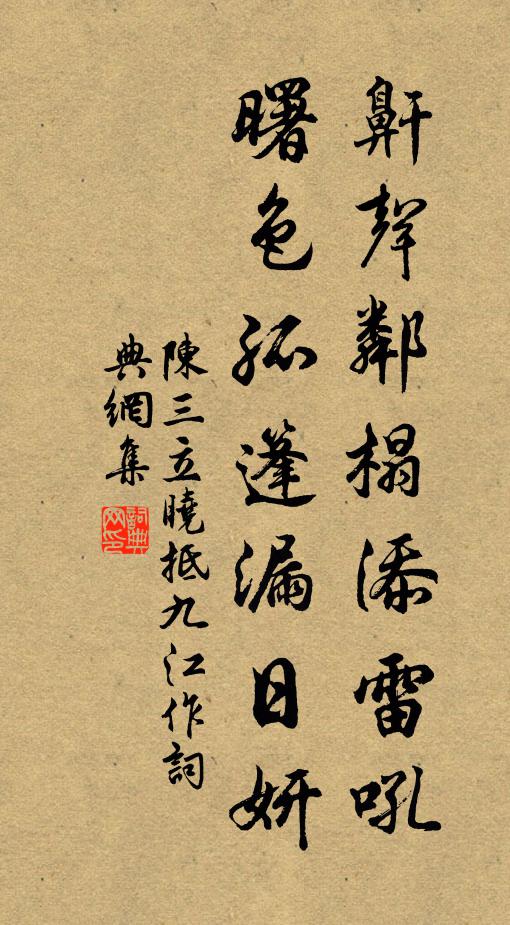 鼾聲鄰榻添雷吼
曙色孤篷漏日妍
陳三立曉抵九江作詞
典網集
詞典網印